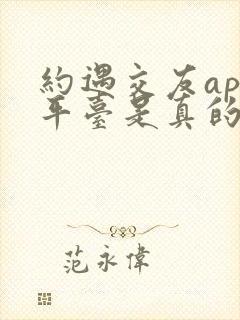 約遇交友ap
平臺是真的
范永偉